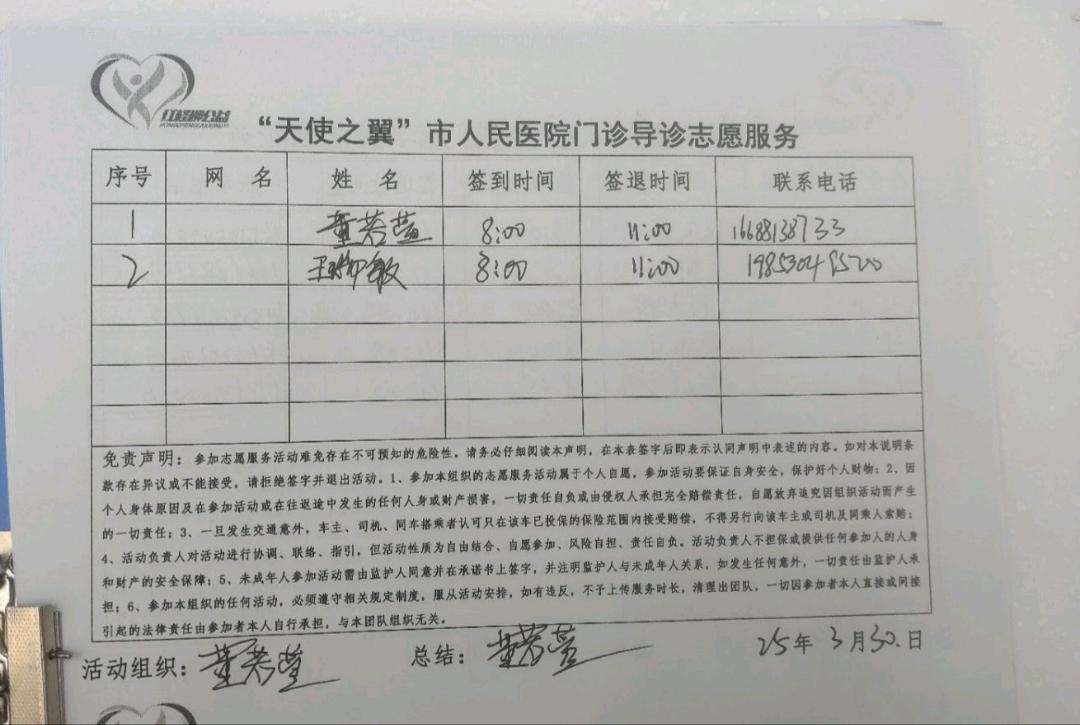 红橙柳公益
HONGCHENGLIUGONGYI
“天使之翼”市人民医院门诊导诊志愿服务
序号 网 名 姓 名 签到时间 签退时间 联系电话
1 董若萱 8:00 11:00 16688138733
2 敏 8:00 11:00 19853049520
免责声明：参加志愿服务活动难免存在不可预知的危险性。请务必仔细阅读本声明，在本表签字后即表示认同声明中表述的内容。如对本说明条
款存在异议或不能接受，请拒绝签字并退出活动。1、参加本组织的志愿服务活动属于个人自愿，参加活动要保证自身安全，保护好个人财物；2、因
个人身体原因及在参加活动或在往返途中发生的任何人身或财产损害，一切责任自负或由侵权人承担完全赔偿责任，自愿放弃追究因组织活动而产生
的一切责任；3、一旦发生交通意外，车主、司机、同车搭乘者认可只在该车已投保的保险范围内接受赔偿，不得另行向该车主或司机及同乘人索赔；
4、活动负责人对活动进行协调、联络、指引，但活动性质为自由结合、自愿参加、风险自担、责任自负。活动负责人不担保或提供任何参加人的人身
和财产的安全保障；5、未成年人参加活动需由监护人同意并在承诺书上签字，并注明监护人与未成年人关系，如发生任何意外，一切责任由监护人承
担；6、参加本组织的任何活动，必须遵守相关规定制度，服从活动安排，如有违反，不予上传服务时长，清理出团队，一切因参加者本人直接或间接
引起的法律责任由参加者本人自行承担，与本团队组织无关。
活动组织：董若萱 总结：董若萱 25年3月30日